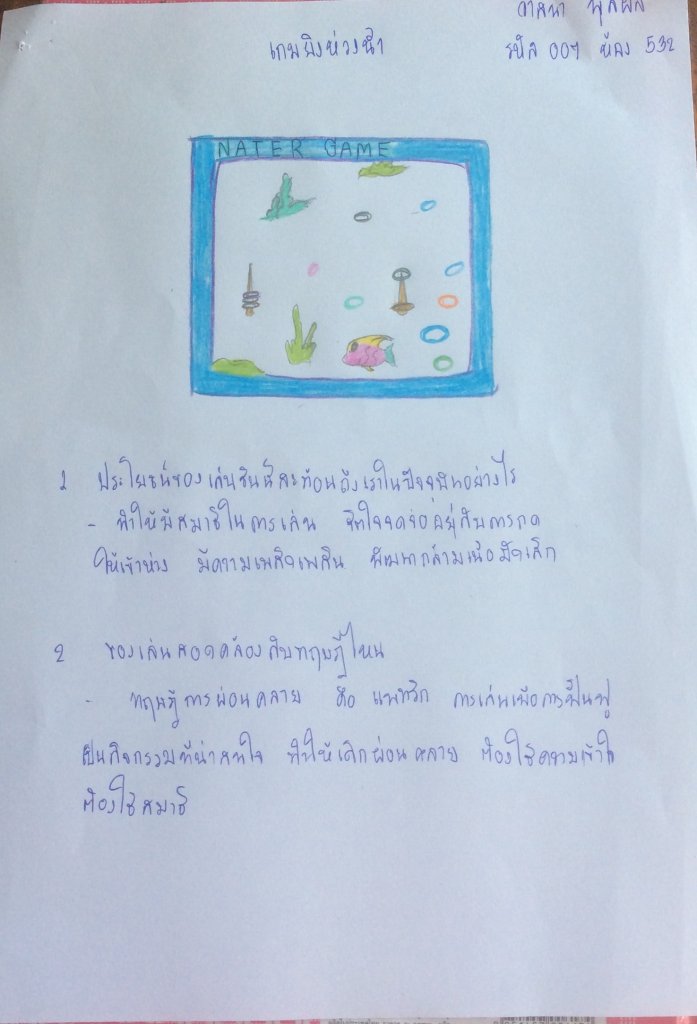 เกมยิงห่วงน้ำ
รหัส 009 ห้อง 532
NATER GAME
1 ประโยชน์ของเล่นชิ้นนี้สะท้อนถึงเราในปัจจุบันอย่างไร
- ทำให้มีสมาธิในการเล่น จิตใจจดจ่ออยู่กับการกด
ให้เข้าห่วง มีความเพลิดเพลิน พัฒนากล้ามเนื้อมัดเล็ก
2 ของเล่นสอดคล้องกับทฤษฎีไหน
- ทฤษฎีการผ่อนคลาย คือ แพทริก การเล่นเพื่อการฟื้นฟู
เป็นกิจกรรมที่น่าสนใจ ทำให้เด็กผ่อนคลาย ต้องใช้ความเข้าใจ
ต้องใช้สมาธิ